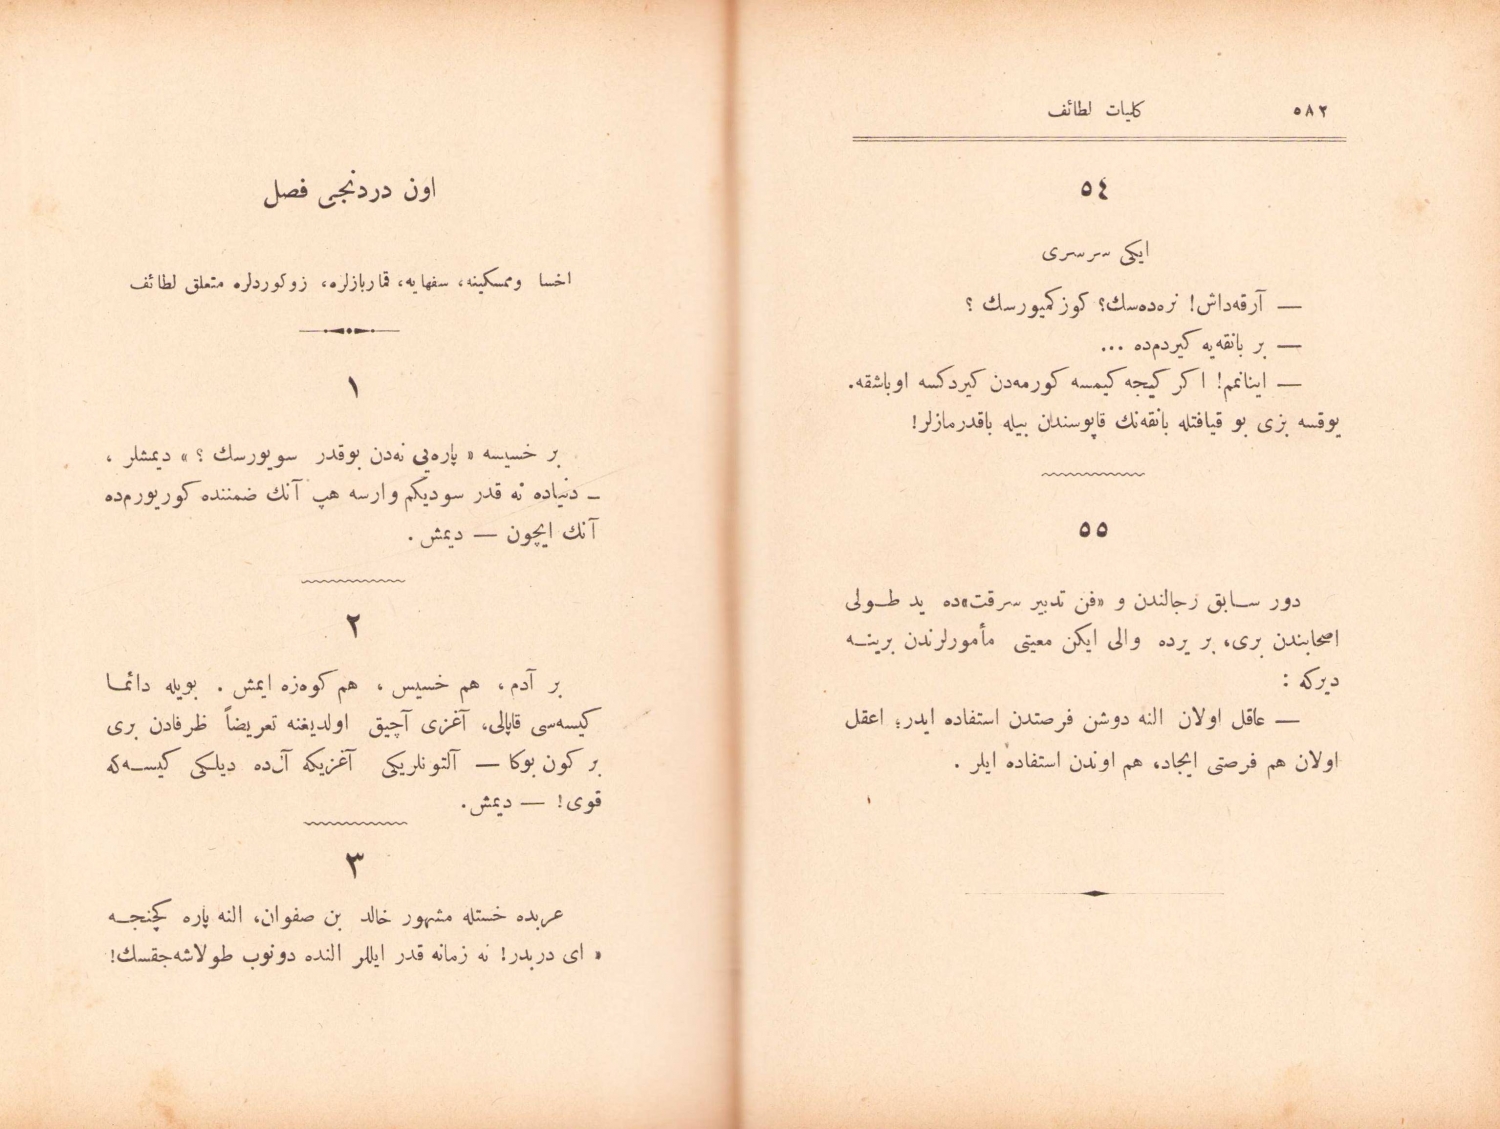 ٥٨٢ كليات لطائف
٥٤
ايكى سرسرى
— آرقه‌داش! نره‌ده‌سك؟ كوزكميورسك ؟
— بر بانقه‌يه كيردم‌ده ...
— اينانمم! اكر كيجه كيمسه كورمه‌دن كيردكسه اوباشقه.
يوقسه بزى بو قيافتله بانقه‌نك قاپوسندن بيله باقدرمازلر!
٥٥
دور سابق رجالندن و «فن تدبير سرقت»ده يد طولى
اصحابندن برى، بر يرده والى ايكن معيتى مأمورلرندن برينه
ديركه :
— عاقل اولان النه دوشن فرصتدن استفاده ايدر؛ اعقل
اولان هم فرصتى ايجاد، هم اوندن استفاده ايلر .
اون دردنجى فصل
اخسا وممسكينه، سفهايه، قماربازلره، زوكوردلره متعلق لطائف
١
بر خسيسه « پاره‌يى نه‌دن بوقدر سويورسك ؟ » ديمشلر ،
— دنياده نه قدر سوديكم وارسه هپ آنك ضمننده كوريورم‌ده
آنك ايچون — ديمش .
٢
بر آدم، هم خسيس ، هم كوه‌زه ايمش . بويله دائما
كيسه‌سى قاپالى، آغزى آچيق اولديغنه تعريضاً ظرفادن برى
بر كون بوكا — آلتونلريكى آغزيكه آل‌ده ديلكى كيسه‌كه
قوى! — ديمش.
٣
عربده خستله مشهور خالد بن صفوان، النه پاره كچنجه
« اى دربدر! نه زمانه قدر ايللر النده دونوب طولاشه‌جقسك!